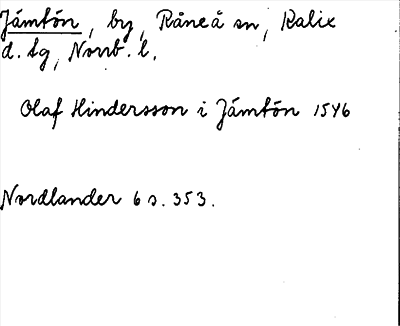 Jämtön, by, Råneå sn, Kalix
d. tg, Norrb. l.
Olaf Hindersson i Jämtön 1546
Nordlander 6 s. 353.